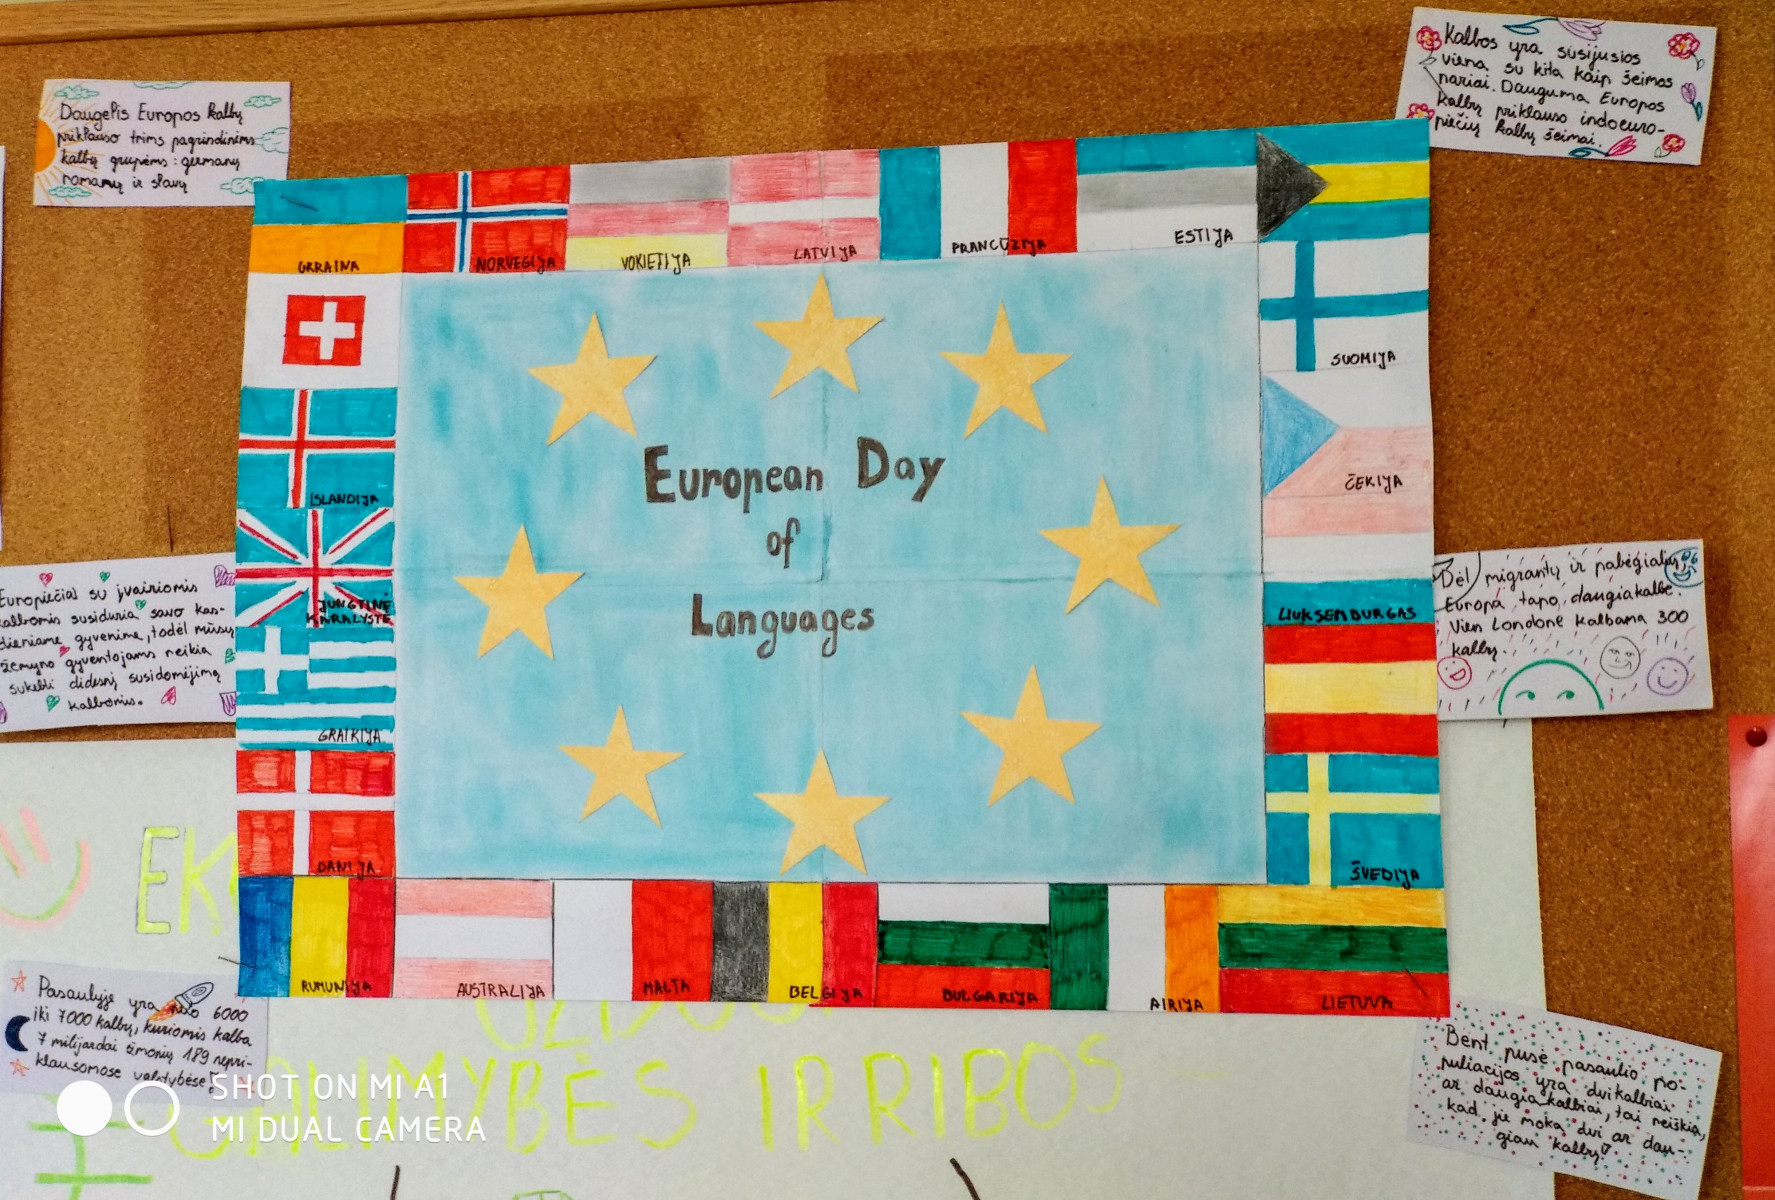 Daugelis Europos kalbų
priklauso trims pagrindinėms
kalbų grupėms: germanų
romanų ir slavų
Kalbos yra susijusios
viena su kita kaip šeimos
nariai. Dauguma Europos
kalbų priklauso indoeuro-
piečių kalbų šeimai.
UKRAINA
NORVEGIJA
VOKIETIJA
LATVIJA
PRANCŪZIJA
ESTIJA
SUOMIJA
ČEKIJA
LIUKSEMBURGAS
ŠVEDIJA
ISLANDIJA
JUNGTINĖ
KARALYSTĖ
GRAIKIJA
DANIJA
RUMUNIJA
AUSTRALIJA
MALTA
BELGIJA
BULGARIJA
AIRIJA
LIETUVA
European Day
of
Languages
Europiečiai su įvairiomis
kalbomis susiduria savo kas-
dieniame gyvenime, todėl mūsų
žemyno gyventojams reikia
sukelti didesnį susidomėjimą
kalbomis.
Dėl migrantų ir pabėgėlių
Europa tapo daugiakalbe.
Vien Londone kalbama 300
kalbų.
Pasaulyje yra nuo 6000
iki 7000 kalbų, kuriomis kalba
7 milijardai žmonių 189 nepri-
klausomose valstybėse
Bent pusė pasaulio po-
puliacijos yra dvikalbiai
ar daugiakalbiai, tai reiškia,
kad jie moka dvi ar dau-
giau kalbų!
GALIMYBĖS IR RIBOS
SHOT ON MI A1
MI DUAL CAMERA